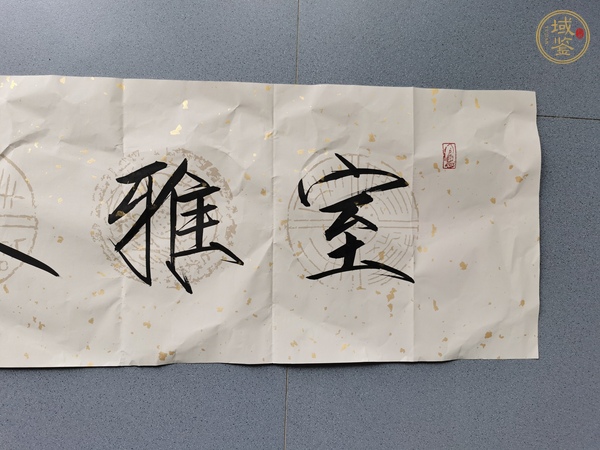 室雅
域鉴